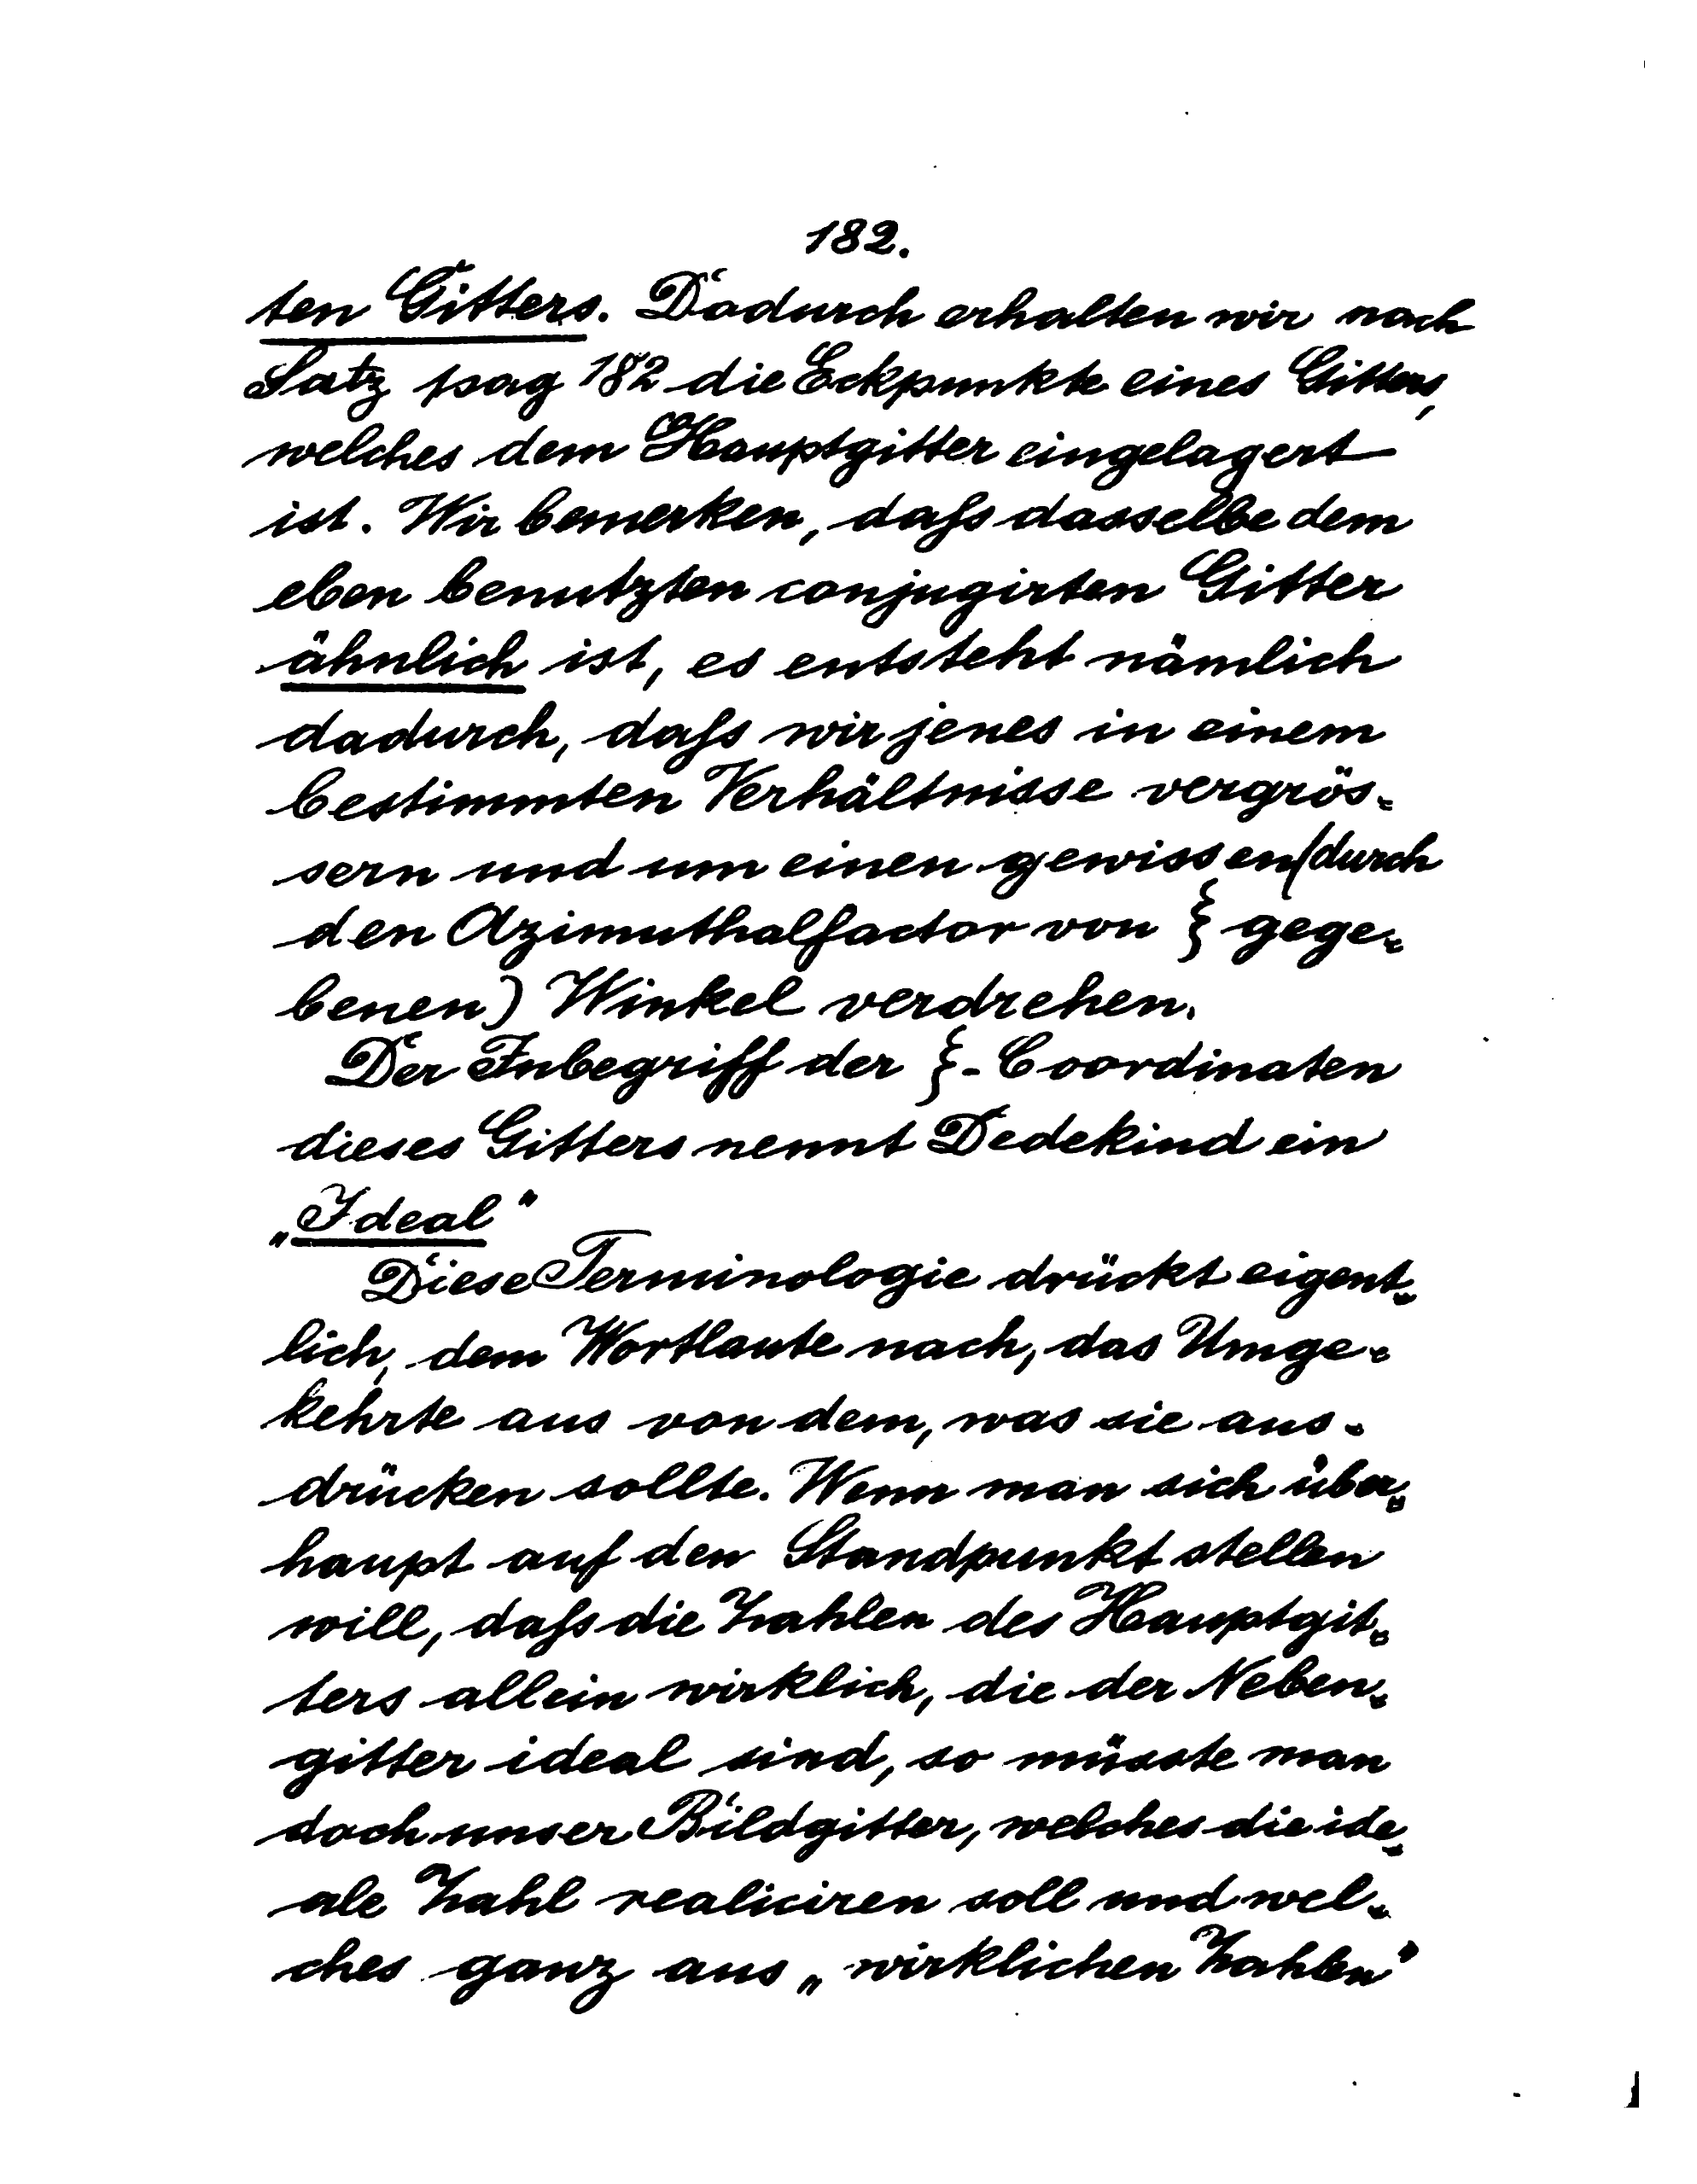 182.
ten Gitters. Dadurch erhalten wir nach
Satz pag 182 die Eckpunkte eines Gitters,
welches dem Hauptgitter eingelagert
ist. Wir bemerken, daſs dasselbe dem
eben benutzten conjugirten Gitter
ähnlich ist, es entsteht nämlich
dadurch, daſs wir jenes in einem
bestimmten Verhältnisse vergrös-
sern und um einen gewissen (durch
den Azimuthalfactor von ξ gege-
benen) Winkel verdrehen.
Der Inbegriff der ξ-Coordinaten
dieses Gitters nennt Dedekind ein
„Ideal"
Diese Terminologie drückt eigent-
lich, dem Wortlaute nach, das Umge-
kehrte aus von dem, was sie aus-
drücken sollte. Wenn man sich über-
haupt auf den Standpunkt stellen
will, daſs die Zahlen des Hauptgit-
ters allein wirklich, die der Neben-
gitter ideal sind, so müsste man
doch unser Bildgitter, welches die ide-
ale Zahl realiciren soll und wel-
ches ganz aus „wirklichen Zahlen"